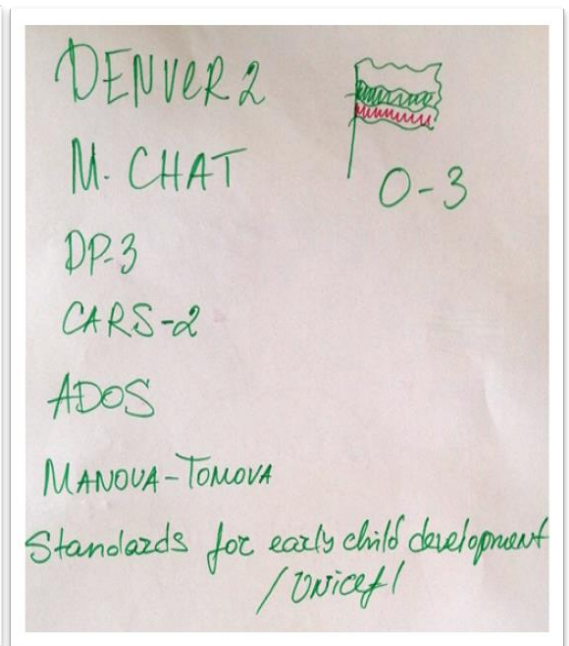 DENVER 2
M. CHAT
0-3
DP-3
CARS-2
ADOS
MANOVA-TOMOVA
Standards for early child development
/Unicef/